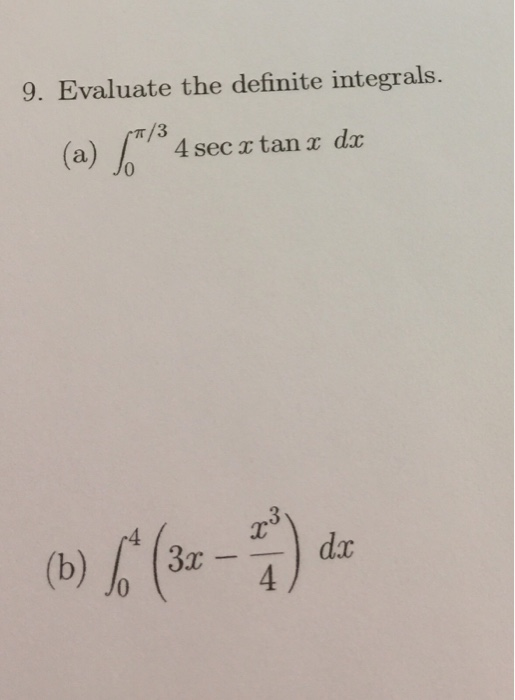 9. Evaluate the definite integrals.
(a) ∫₀^{π/3} 4 sec x tan x dx
(b) ∫₀⁴ (3x − x³/4) dx